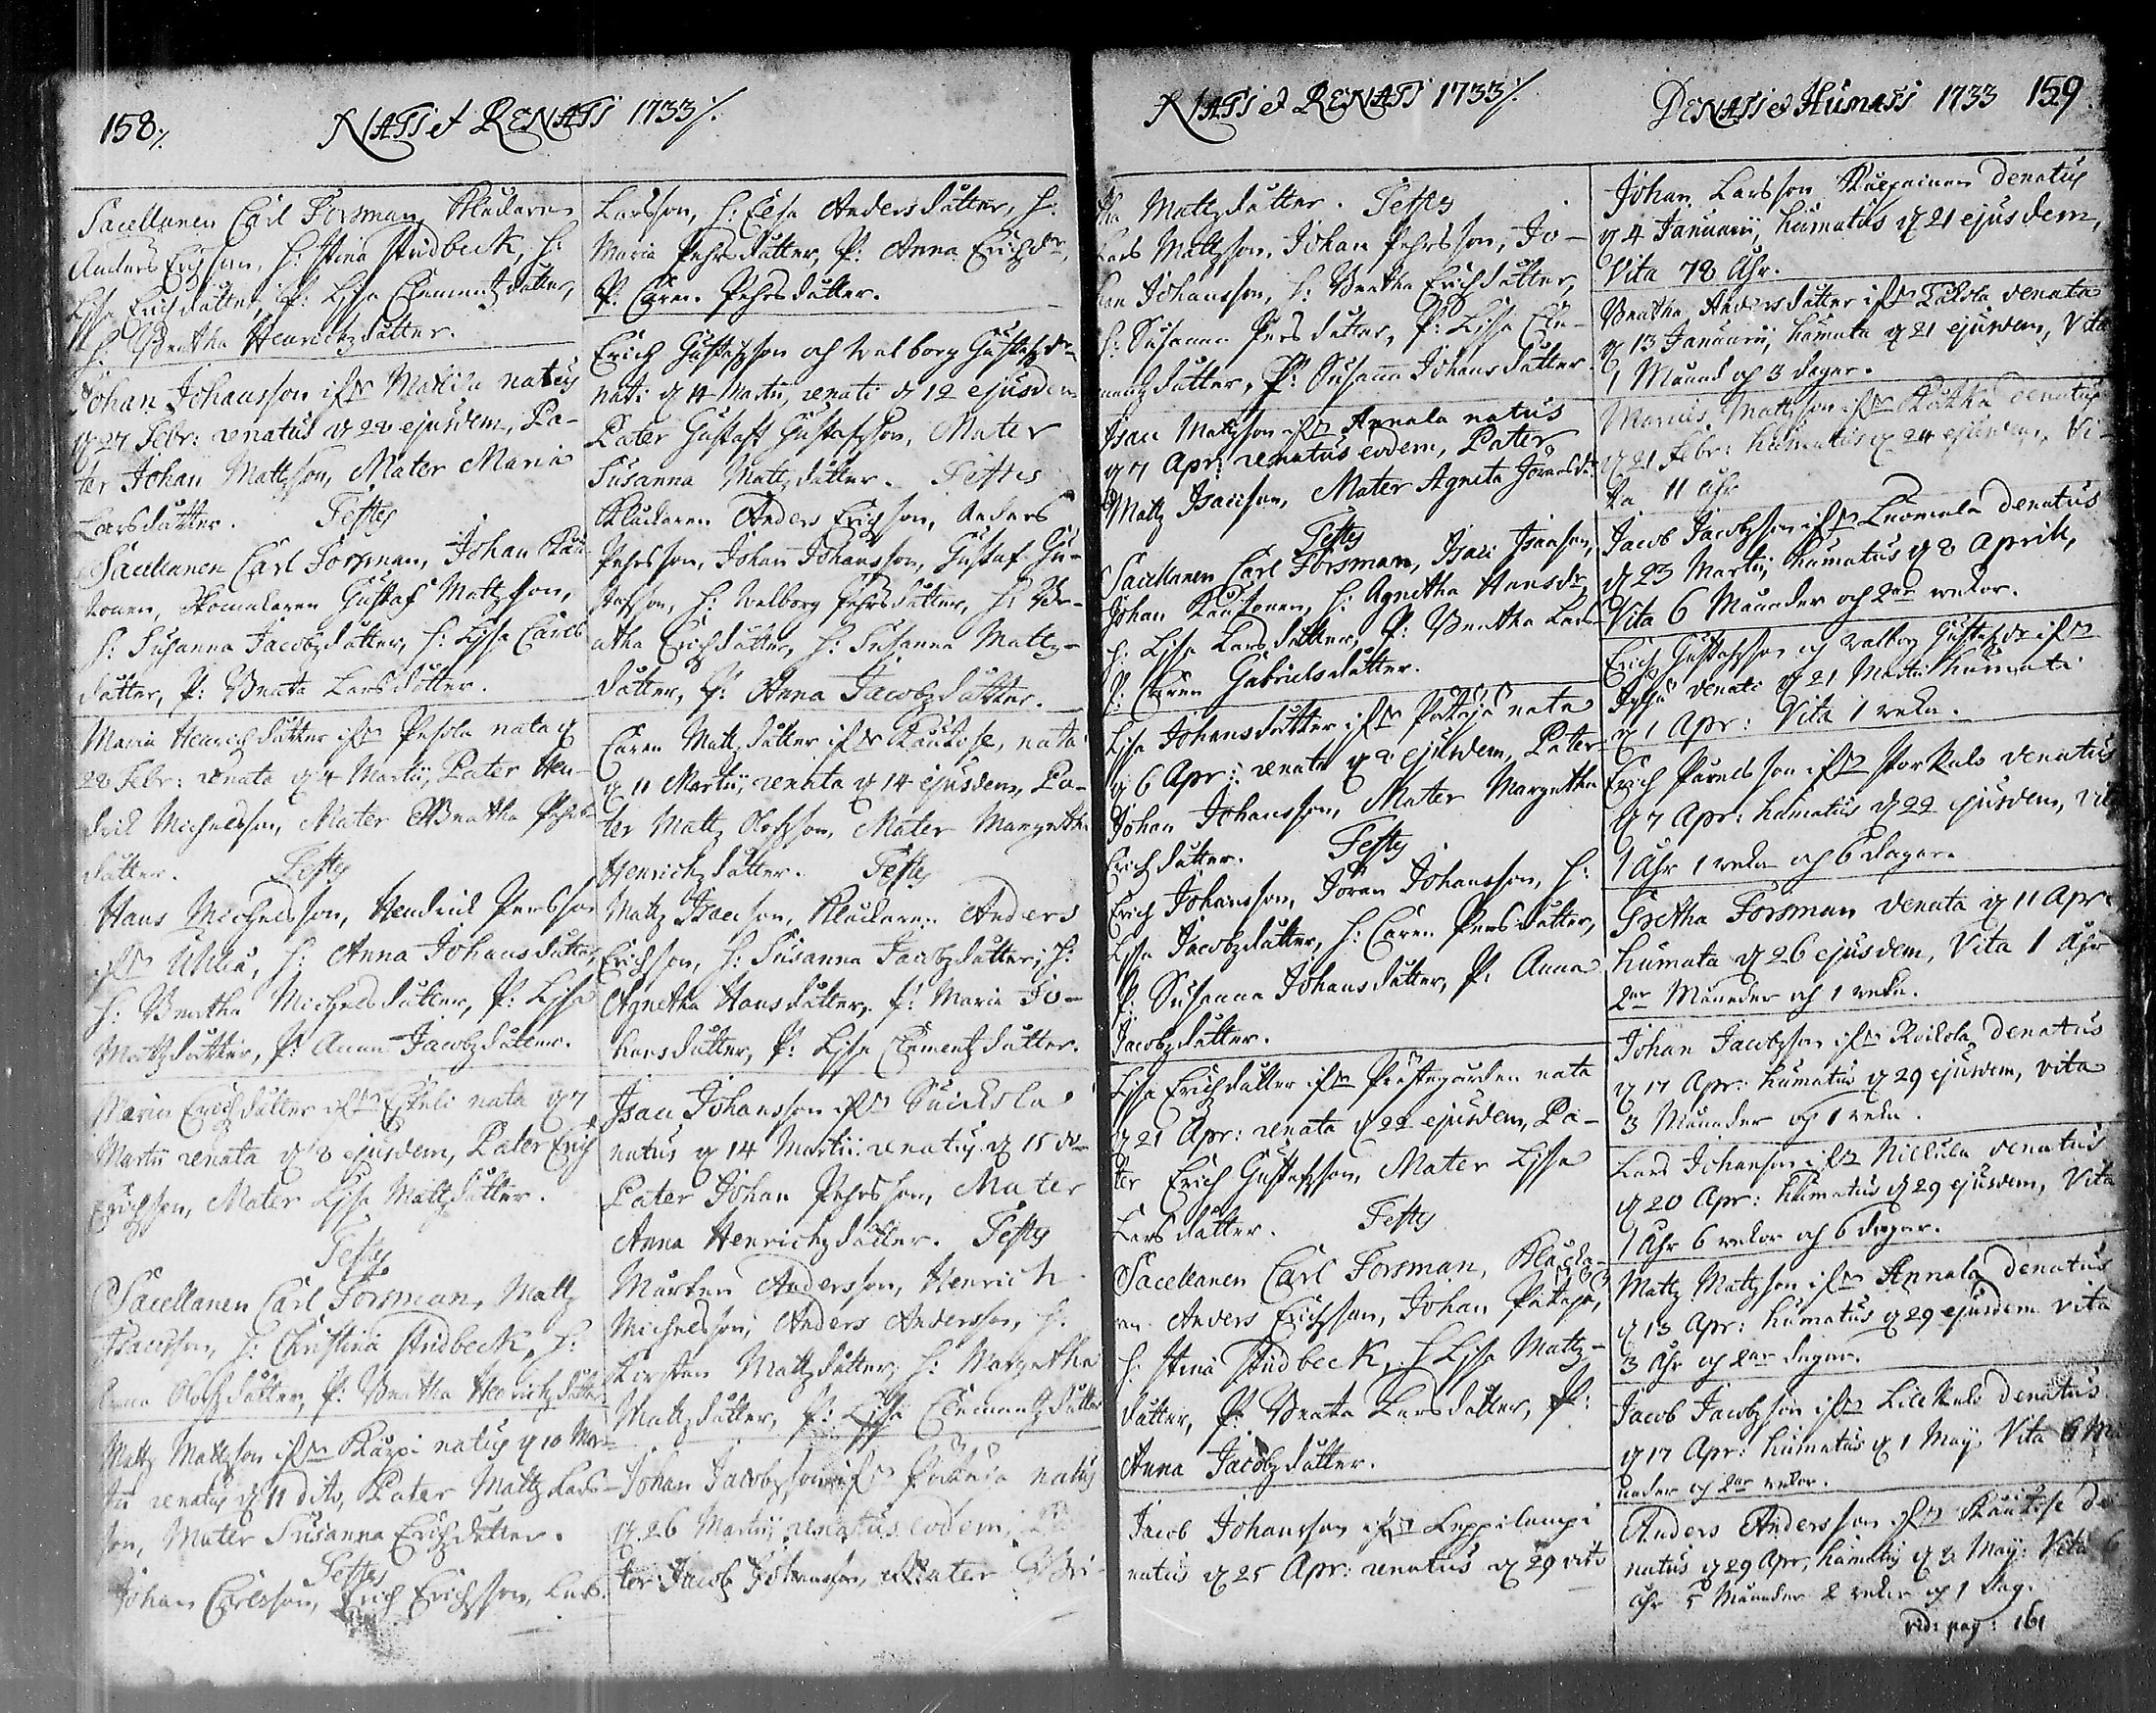 158./.
NATI et RENATI 1733./.
Sacellanen Carl Forsman, Kluckaren
Anders Erichson, H: Stina Studbeck, H:
Lissa Erichdutter, P: Lissa Clementzdutter,
P: Beatha Henrichzdutter.
Johan Johansson ifrån natus
d 27 Febr: renatus d 28 ejusdem, Pa-
ter Johan Mattzson, Mater Maria
Larsdutter. Testes
Sacellanen Carl Forsman, Johan Kau-
konen, Gustaf Mattzson,
H: Susanna Jacobzdutter, H: Lissa Carls-
dutter, P: Beata Larsdutter.
Maria Henrichdutter ifrån Pesola nata d
28 Febr: renata d 4 Martii, Pater Hen-
drick Michelsson, Mater Beatha Pehrs-
dutter. Testes
Hans Michelsson, Hendrick Persson
ifrån H: Anna Johansdutter,
H: Beatha Michelsdutter, P: Lissa
Mattzdutter, P: Anna Jacobzdutter.
Maria Erichdutter ifrån nata d 7
Martii renata d 8 ejusdem, Pater Erich
Erichsson, Mater Lissa Mattzdutter.
Testes
Sacellanen Carl Forsman, Mattz
Isacsson, H: Christina Studbeck, H:
Anna Olofzdutter, P: Beatha Henrichzdutter
Mattz Mattzson ifrån Kurpi natus d 10 Mar-
tii renatus d 11 dito, Pater Mattz Lars-
son, Mater Susanna Erichzdutter.
Testes
Johan Carlsson, Erich Erichsson, Lars
Larsson, H: Elsa Andersdutter, H:
Maria Pehrsdutter, P: Anna Erichdr,
P: Caren Pehrsdutter.
Erich Gustafsson och Walborg Gustafzdr
nati d 11 Martii, renati d 12 ejusdem
Pater Gustaff Gustafsson, Mater
Susanna Mattzdutter. Testes
Kluckaren Anders Erichson, Anders
Pehrsson, Johan Johansson, Gustaf Gu-
stafsson, H: Walborg Pehrsdutter, H: Be-
atha Erichdutter, H: Susanna Mattz-
dutter, P: Anna Jacobzdutter.
Caren Mattzdutter ifrån Kautose, nata
d 11 Martii, renata d 14 ejusdem, Pa-
ter Mattz Olofsson, Mater Margretha
Henrichzdutter. Testes
Mattz Isacson, Kluckaren Anders
Erichsson, H: Susanna Jacobzdutter, H:
Agnetha Hansdutter, P: Maria Jo-
hansdutter, P: Lissa Clementzdutter.
Isac Johansson ifrån Suickola
natus d 14 Martii renatus d 15 do
Pater Johan Pehrsson, Mater
Anna Henrichzdutter. Testes
Marten Andersson, Henrich
Michelsson, Anders Andersson, H:
Kirstin Mattzdutter, H: Margretha
Mattzdutter, P: Lissa Clementzdutter
Johan Jacobzson ifrån natus
d 26 Martii, renatus eodem, Pa-
ter Jacob Johansson, Mater Bri-
NATI et RENATI 1733./.
tha Mattzdutter. Testes
Lars Mattzson, Johan Pehrsson, Jo-
han Johansson, H: Beatha Erichdutter,
H: Susanna Persdutter, P: Lissa Cle-
mentzdutter, P: Susanna Johansdutter
Isac Mattzson ifrån Annala natus
d 7 Apr: renatus eodem, Pater
Mattz Isacson, Mater Agneta Joransdr
Testes
Sacellanen Carl Forsman, Isac Isacson,
Johan Kautonen, H: Agnetha Hansdr,
H: Lissa Larsdutter, P: Beatha Lars
P: Caren Gabrielsdutter.
Lisa Johansdutter ifrån nata
d 6 Apr: renata d 8 ejusdem, Pater
Johan Johansson, Mater Margretha
Erichdutter. Testes
Erich Johansson, Joran Johansson, H:
Lissa Jacobzdutter, H: Caren Persdutter,
P: Susanna Johansdutter, P: Anna
Jacobzdutter.
Lissa Erichdutter ifrån Prästegården nata
d 21 Apr: renata d 22 ejusdem, Pa-
ter Erich Gustafsson, Mater Lissa
Larsdutter. Testes
Sacellanen Carl Forsman, Klucka-
ren Anders Erichson, Johan
H: Stina Studbeck, H Lissa Mattz-
dutter, P: Beata Larsdutter, P:
Anna Jacobzdutter.
Jacob Johansson ifrån Leppilampi
natus d 25 Apr: renatus d 29 dito
DENATI et HUMATI 1733 159.
Johan Larsson denatus
d 4 Januarii, humatus d 21 ejusdem,
Vita 78 Åhr.
Beatha Andersdutter ifrån denata
d 13 Januarii, humata d 21 ejusdem, Vita
1 Månad och 3 dagar.
Marcus Mattzson ifrån denatus
d 21 Febr: humatus d 24 ejusdem, Vi-
ta 11 Åhr
Jacob Jacobzson ifrån Luomala denatus
d 23 Martii, humatus d 8 Aprill,
Vita 6 Månader och 2ne wekor.
Erich Gustafsson och Walborg Gustafzdr ifrån
denati d 21 Martii humati
d 1 Apr: Vita 1 weka.
Erich ifrån denatus
d 7 Apr: humatus d 22 ejusdem, vita
1 Åhr 1 weka och 6 dagar.
Gretha Forsman denata d 11 Apr:
humata d 26 ejusdem, Vita 1 Åhr
2ne Månader och 1 weka.
Johan Jacobzson ifrån Koilola denatus
d 17 Apr: humatus d 29 ejusdem, vita
3 Månader och 1 weka.
Lars Johansson ifrån denatus
d 20 Apr: humatus d 29 ejusdem, Vita
1 Åhr 6 wekor och 6 dagar.
Mattz Mattzson ifrån Annala denatus
d 13 Apr: humatus d 29 ejusdem vita
3 Åhr och 2ne dagar.
Jacob Jacobzson ifrån denatus
d 17 Apr: humatus d 1 Maij, Vita 6 Må-
nader och 2ne wekor.
Anders Andersson ifrån Kautose de-
natus d 29 Apr, humatus d 3 Maij: Vita 6
Åhr 5 Månader 2 wekor och 1 dag.
vid: pag: 161